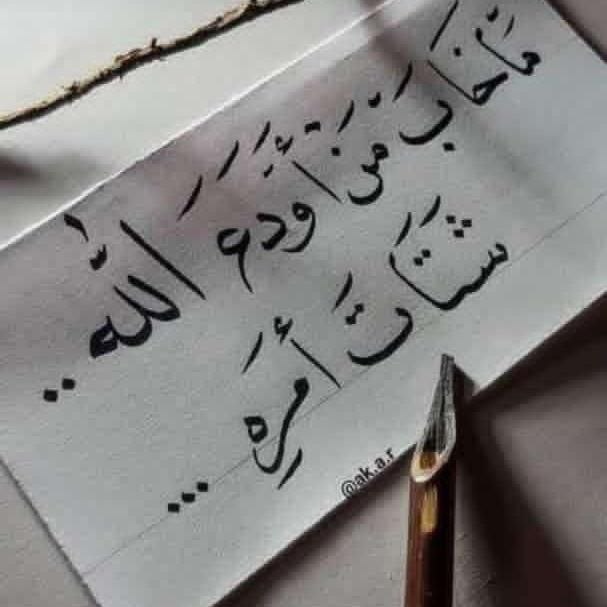 مَا خَابَ مَن أَودَعَ اللّٰه..
شَتَاتَ أَمرِه...
@ak.a.r